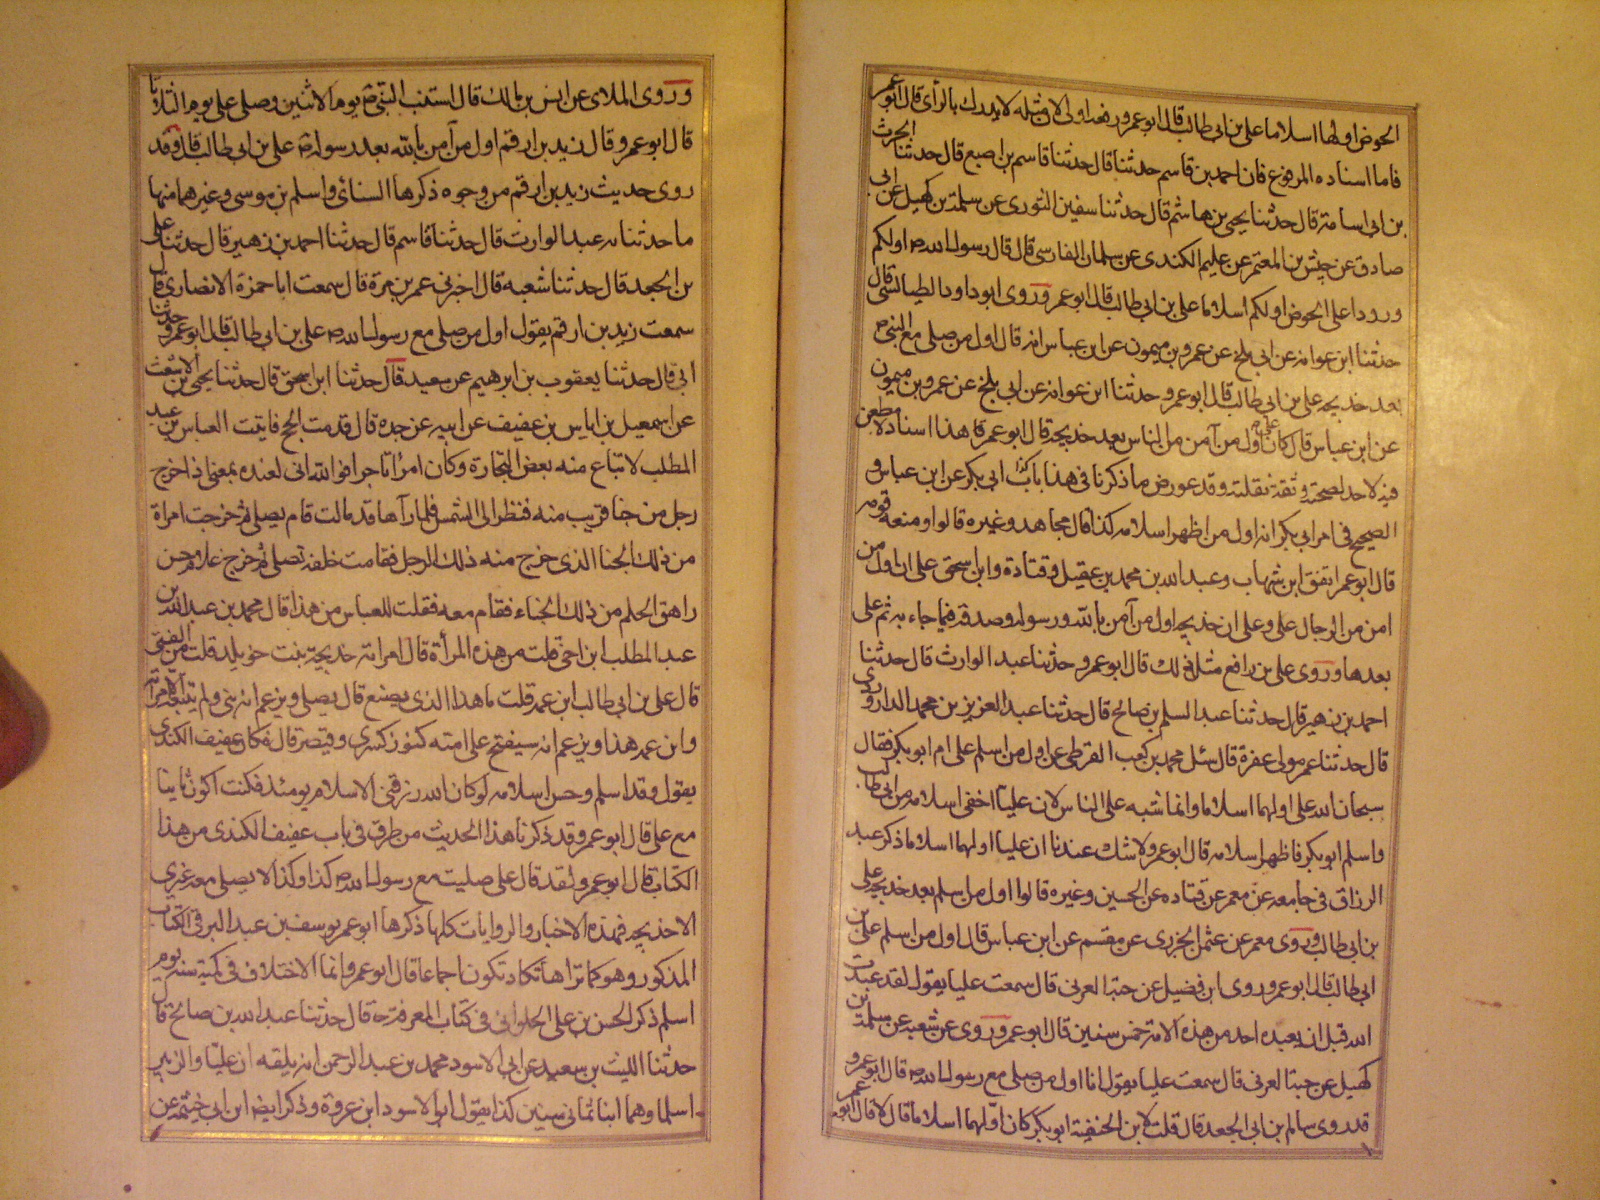 الحوض اولها اسلاما على بن ابى طالب قال ابو عمرو رفعه اولى لان مثله لا يدرك بالرأى قال ابو عمر
فاما اسناده المرفوع فان احمد بن قاسم حدثنا قال حدثنا قاسم بن اصبع قال حدثنا الحرث
بن ابى اسامة قال حدثنا يحيى بن هاشم قال حدثنا سفين الثورى عن سلمة بن كهيل عن ابى
صادق عن حنش بن المعتمر عن عليم الكندى عن سلمان الفارسى قال قال رسول الله ص اولكم
ورودا على الحوض اولكم اسلاما على بن ابى طالب قال ابو عمر وروى ابو داود الطيالسى قال
حدثنا ابن عوانه عن ابى بلج عن عمرو بن ميمون عن ابن عباس انه قال اول من صلى مع النبى ص
بعد خديجه على بن ابى طالب قال ابو عمرو حدثنا ابن عوانه عن ابى بلج عن عمرو بن ميمون
عن ابن عباس قال كان على اول من آمن من الناس بعد خديجه قال ابو عمر هذا اسناد لا مطعن
فيه لاحد لصحته وثقة نقلته وقد عورض ما ذكرنا فى هذا باب ابى بكر عن ابن عباس و
الصحيح فى امر ابى بكر انه اول من اظهر اسلامه كذا قال مجاهد وغيره قالوا ومنعه قومه
قال ابو عمر اتفق ابن شهاب وعبد الله بن محمد بن عقيل وقتادة وابن اسحق على ان اول من
امن من الرجال على وعلى ان خديجه اول من آمن بالله ورسوله وصدقه فيما جاء به ثم على
بعدها وروى على بن رافع مثل ذلك قال ابو عمرو حدثنا عبد الوارث قال حدثنا
احمد بن زهير قال حدثنا عبد السلم بن صالح قال حدثنا عبد العزيز بن محمد الداروردى
قال حدثنا عمر مولى عفرة قال سئل محمد بن كعب القرظى عن اول من اسلم على ام ابو بكر فقال
سبحان الله على اولهما اسلاما وانما شبه على الناس لان عليا اخفى اسلامه من ابى طالب
واسلم ابو بكر فاظهر اسلامه قال ابو عمر ولا شك عندنا ان عليا اولهما اسلاما ذكر عبد
الرزاق فى جامعه عن معمر عن قتاده عن الحسين وغيره قالوا اول من اسلم بعد خديجه على
بن ابى طالب وروى معمر عن عثمن الجزرى عن مقسم عن ابن عباس قال اول من اسلم على بن
ابى طالب قال ابو عمر وروى ابن فضيل عن حبة العرنى قال سمعت عليا يقول لقد عبدت
الله قبل ان يعبده احد من هذه الامة خمس سنين قال ابو عمر وروى عن شعبه عن سلمة بن
كهيل عن حبة العرنى قال سمعت عليا يقول انا اول من صلى مع رسول الله ص قال ابو عمرو
قد روى سالم بن ابى الجعد قال قلت لابن الحنفية ابو بكر كان اولهما اسلاما قال لا قال ابو عمر
وروى الملاى عن انس بن مالك قال استنبى النبى ص يوم الاثنين وصلى على يوم الثلاثا
قال ابو عمرو قال زيد بن ارقم اول من آمن بالله بعد رسوله ص على بن ابى طالب قال وقد
روى حديث زيد بن ارقم من وجوه ذكرها النسائى واسلم بن موسى وغيرهما منها
ما حدثنا به عبد الوارث قال حدثنا قاسم قال حدثنا احمد بن زهير قال حدثنا على
بن الجعد قال حدثنا شعبه قال اخبرنى عمر بن مرة قال سمعت ابا حمزة الانصارى قال
سمعت زيد بن ارقم يقول اول من صلى مع رسول الله ص على بن ابى طالب قال ابو عمرو حدثنا
ابى قال حدثنا يعقوب بن ابرهيم عن سعيد قال حدثنا ابن اسحق قال حدثنا يحيى بن الاشعث
عن اسمعيل بن اياس بن عفيف عن ابيه عن جده قال قدمت الحج فاتيت العباس بن عبد
المطلب لابتاع منه بعض التجارة وكان امرأ تاجرا فوالله انى لعنده بمعنى اذ اخرج
رجل من خبا قريب منه فنظر الى الشمس فلما رآها قد مالت قام يصلى ثم خرجت امراة
من ذلك الخبا الذى خرج منه ذلك الرجل فقامت خلفه تصلى ثم خرج غلام حين
راهق الحلم من ذلك الخباء فقام معه فقلت للعباس من هذا قال محمد بن عبد الله بن
عبد المطلب ابن اخى قلت من هذه المرأة قال امراته خديجة بنت خويلد قلت من الفتى
قال على بن ابى طالب ابن عمه قلت ما هذا الذى يصنع قال يصلى ويزعم انه نبى ولم يتبعه الا امراته
وابن عمه هذا ويزعم انه سيفتح على امته كنوز كسرى وقيصر قال فكان عفيف الكندى
يقول وقد اسلم وحسن اسلامه لو كان الله رزقنى الاسلام يومئذ فكنت اكون ثانيا
مع على قال ابو عمرو قد ذكرنا هذا الحديث من طرق فى باب عفيف الكندى من هذا
الكتاب قال ابو عمر ولقد قال على صليت مع رسول الله ص كذا وكذا لا يصلى معه غيرى
الا خديجه فهذه الاخبار والروايات كلها ذكرها ابو عمر يوسف بن عبد البر فى الكتاب
المذكور وهو كما تراها تكاد تكون اجماعا قال ابو عمر وانما الاختلاف فى كمية سنه يوم
اسلم ذكر الحسن بن على الحلوانى فى كتاب المعرفة له قال حدثنا عبد الله بن صالح قال
حدثنا الليث بن سعيد عن ابى الاسود محمد بن عبد الرحمن انه بلغه ان عليا والزبير
اسلما وهما ابنا ثمانى سنين كذا يقول ابو الاسود ابن عروة وذكر ايضا ابن ابى خيثمة عن